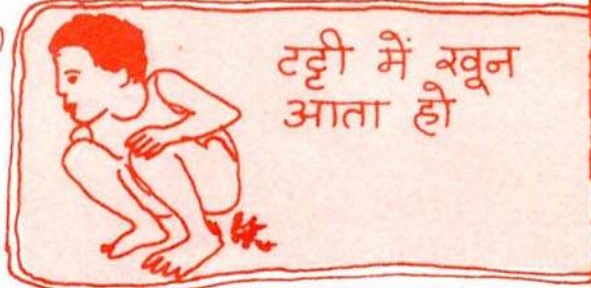 टट्टी में खून
आता हो